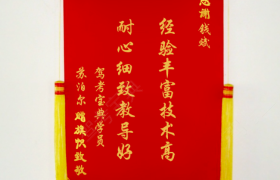 感谢钱斌
经验丰富技术高
耐心细致教导好
驾考宝典学员
苏泊尔 赠旗帜致敬